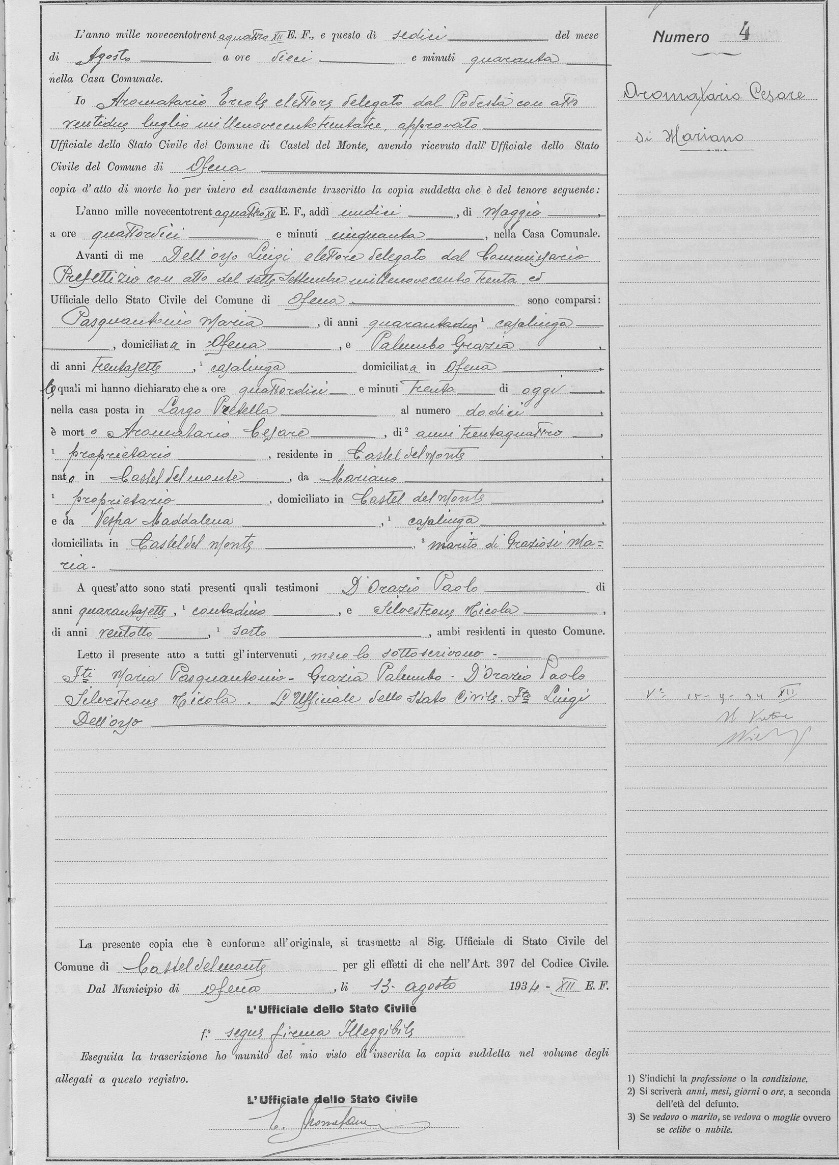 L'anno mille novecentotrentaquattro XII E. F., e questo di sedici del mese
di Agosto a ore dieci e minuti quaranta
nella Casa Comunale.
Io Aromatario Ercole elettore delegato dal Podestà con atto
ventidue luglio millenovecentotrentatre, approvato
Ufficiale dello Stato Civile del Comune di Castel del Monte, avendo ricevuto dall'Ufficiale dello Stato
Civile del Comune di Ofena
copia d'atto di morte ho per intero ed esattamente trascritto la copia suddetta che è del tenore seguente:
L'anno mille novecentotrentaquattro XII E. F., addì undici, di Maggio,
a ore quattordici e minuti cinquanta, nella Casa Comunale.
Avanti di me Dell'orso Luigi elettore delegato dal Commissario
Prefettizio con atto del sette Settembre millenovecento trenta ed
Ufficiale dello Stato Civile del Comune di Ofena sono comparsi:
Pasquantonio Maria, di anni quarantadue 1 casalinga
, domiciliata in Ofena, e Palumbo Grazia
di anni trentasette, 1 casalinga domiciliata in Ofena,
le quali mi hanno dichiarato che a ore quattordici e minuti trenta di oggi,
nella casa posta in Largo Pretella al numero dodici,
è morto Aromatario Cesare, di 2 anni trentaquattro,
1 proprietario, residente in Castel del Monte,
nato in Castel del monte, da Mariano,
1 proprietario, domiciliato in Castel del Monte
e da Vespa Maddalena, 1 casalinga
domiciliata in Castel del Monte, 3 marito di Graziosi Ma=
ria.-
A quest'atto sono stati presenti quali testimoni D'Orazio Paolo di
anni quarantasette, 1 contadino, e Silvestrone Nicola,
di anni ventotto, 1 sarto, ambi residenti in questo Comune.
Letto il presente atto a tutti gl'intervenuti, meco lo sottoscrivono -
F.ti Maria Pasquantonio - Grazia Palumbo - D'Orazio Paolo
Silvestrone Nicola. L'Ufficiale dello Stato Civile. F.to Luigi
Dell'orso
La presente copia che è conforme all'originale, si trasmette al Sig. Ufficiale di Stato Civile del
Comune di Castel del monte per gli effetti di che nell'Art. 397 del Codice Civile.
Dal Municipio di Ofena, li 13 - agosto 1934 - XII E. F.
L'Ufficiale dello Stato Civile
f.o segue firma Illeggibile
Eseguita la trascrizione ho munito del mio visto ed inserita la copia suddetta nel volume degli
allegati a questo registro.
L'Ufficiale dello Stato Civile
Numero 4
Aromatario Cesare
di Mariano
XII
1) S'indichi la professione o la condizione.
2) Si scriverà anni, mesi, giorni o ore, a seconda
dell'età del defunto.
3) Se vedovo o marito, se vedova o moglie ovvero
se celibe o nubile.